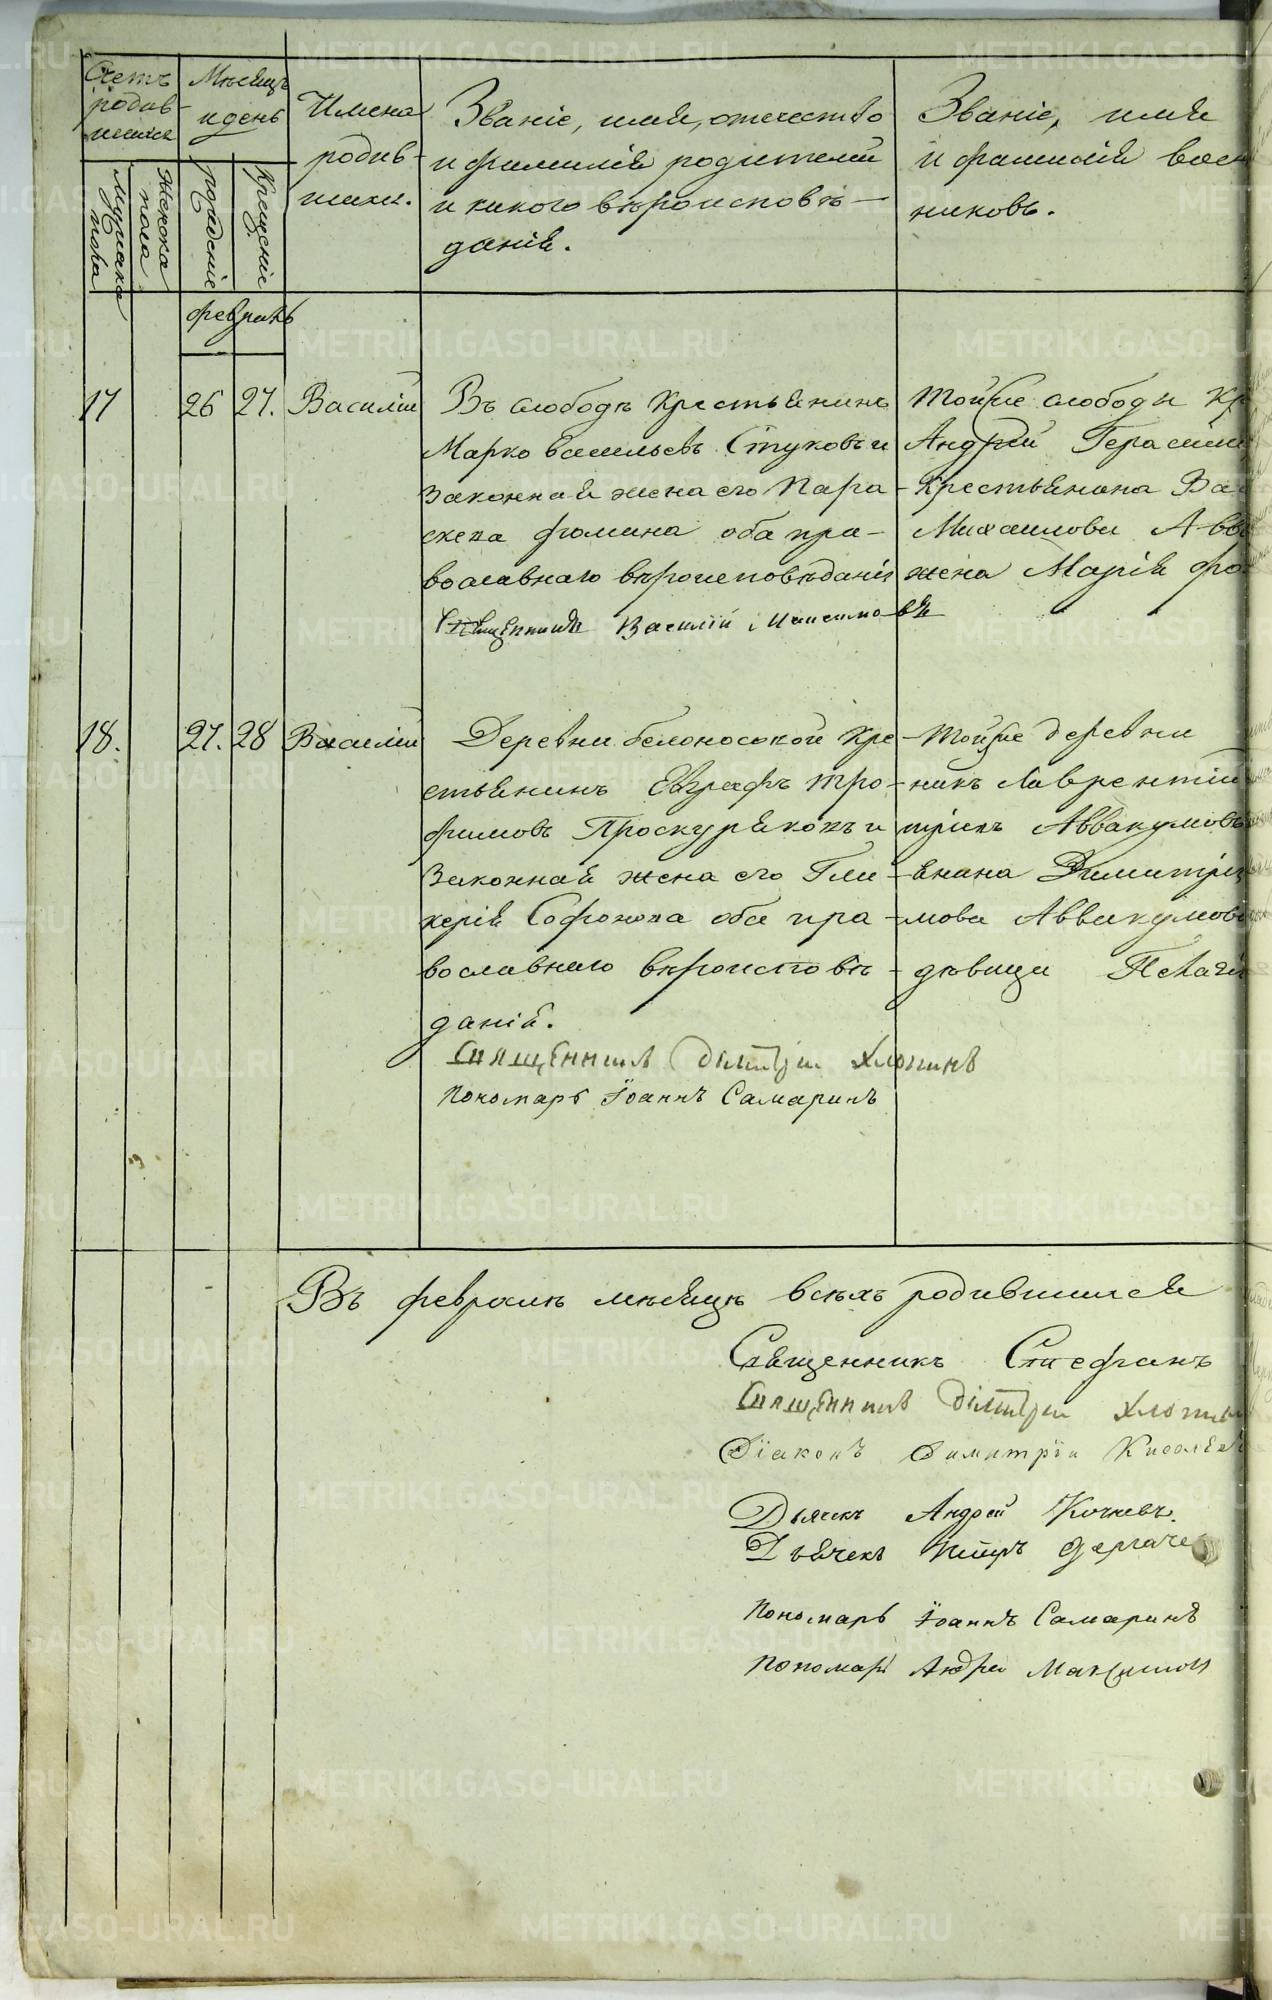 Счетъ родив-
шихся
Мѣсяцъ
и день
Имена
родив-
шихс.
Званіе, имя, отечество
и фамилія родителей
и какого вѣроисповѣ-
данія.
Званіе, имя
и фамилія вос
никовъ.
Мужеска
пола
Женска
пола
рожденіе
Крещеніе
февраль
17 26 27. Василій
Въ слободѣ Крестьянинъ
Марко Васильевъ Стуковъ и
Законная жена его Пара-
скева Фомина оба пра-
вославнаго вѣроисповѣданія
Священникъ Василій Максимовъ
Тойже слободы Кр
Андрей Герасим
Крестьянина Ва
Михаилова Авв
жена Марія Фо
18. 27. 28 Василій
Деревни Белоносовой Кре-
стьянинъ Евграфъ Тро-
фимовъ Проскуряковъ и
Законная жена его Гли-
керія Софонова оба пра-
вославнаго вѣроисповѣ-
данія.
Священникъ Димитрий Хлопинъ
Пономарь Іоаннъ Самаринъ
Тойже деревни
никъ Лаврентій
трій Аввакумовъ
янина Димитрія
мова Аввакумов
дѣвица Пелагі
Въ февралѣ мѣсяцѣ всѣхъ родившихся
Священникъ Стефанъ
Священникъ Димитрий Хлопин
Діаконъ Димитрій Киселев
Дьячекъ Андрей Кочневъ.
Дьячекъ Петръ Дергаче
Пономарь Іоаннъ Самаринъ
Пономарь Андрей Максимов
METRIKI.GASO-URAL.RU